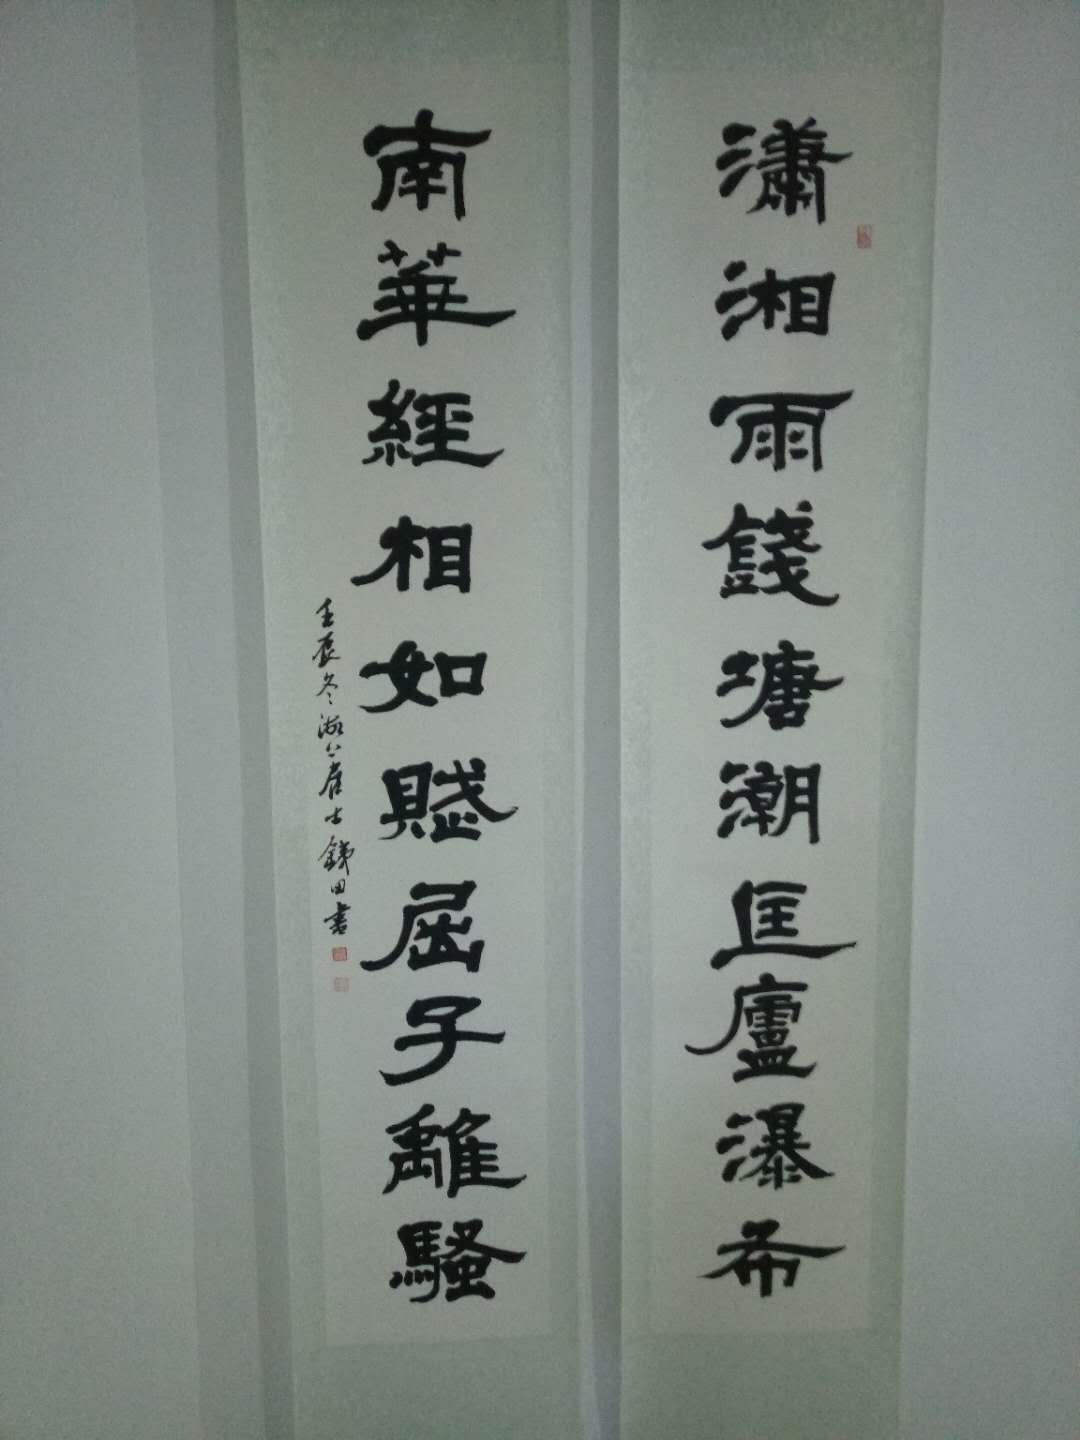 瀟湘雨錢塘潮匡廬瀑布
南華經相如賦屈子離騷
壬辰冬士銕田書